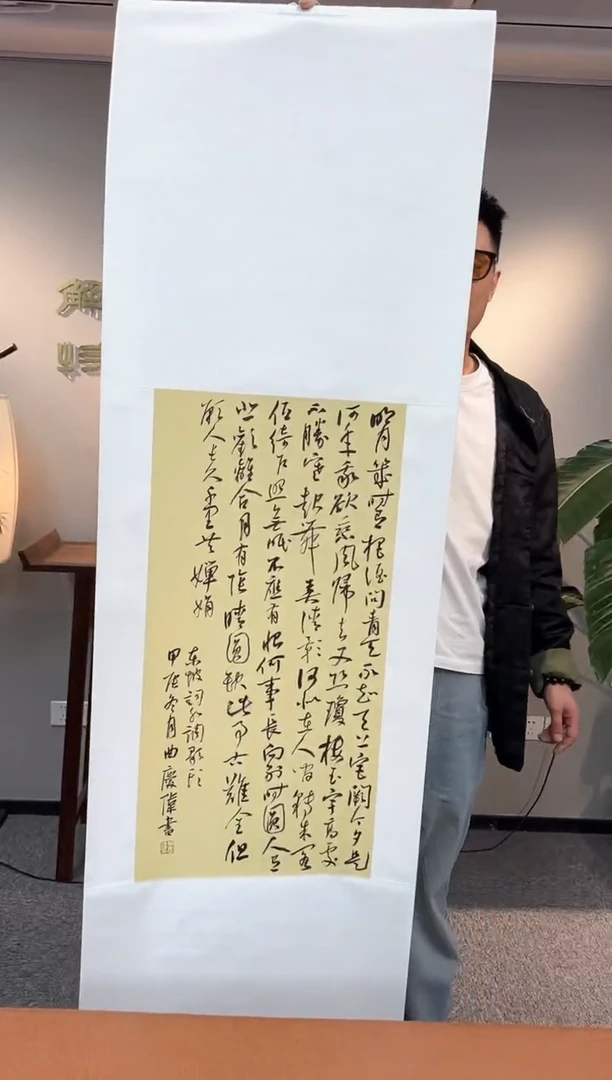 明月幾時有把酒問青天不知天上宮闕今夕是
何年我欲乘風歸去又恐瓊樓玉宇高處
不勝寒起舞弄清影何似在人間轉朱閣
低綺戶照無眠不應有恨何事長向別時圓人有
悲歡離合月有陰晴圓缺此事古難全但
願人長久千里共嬋娟
東坡詞水調歌頭
甲辰冬月曲慶偉書
解